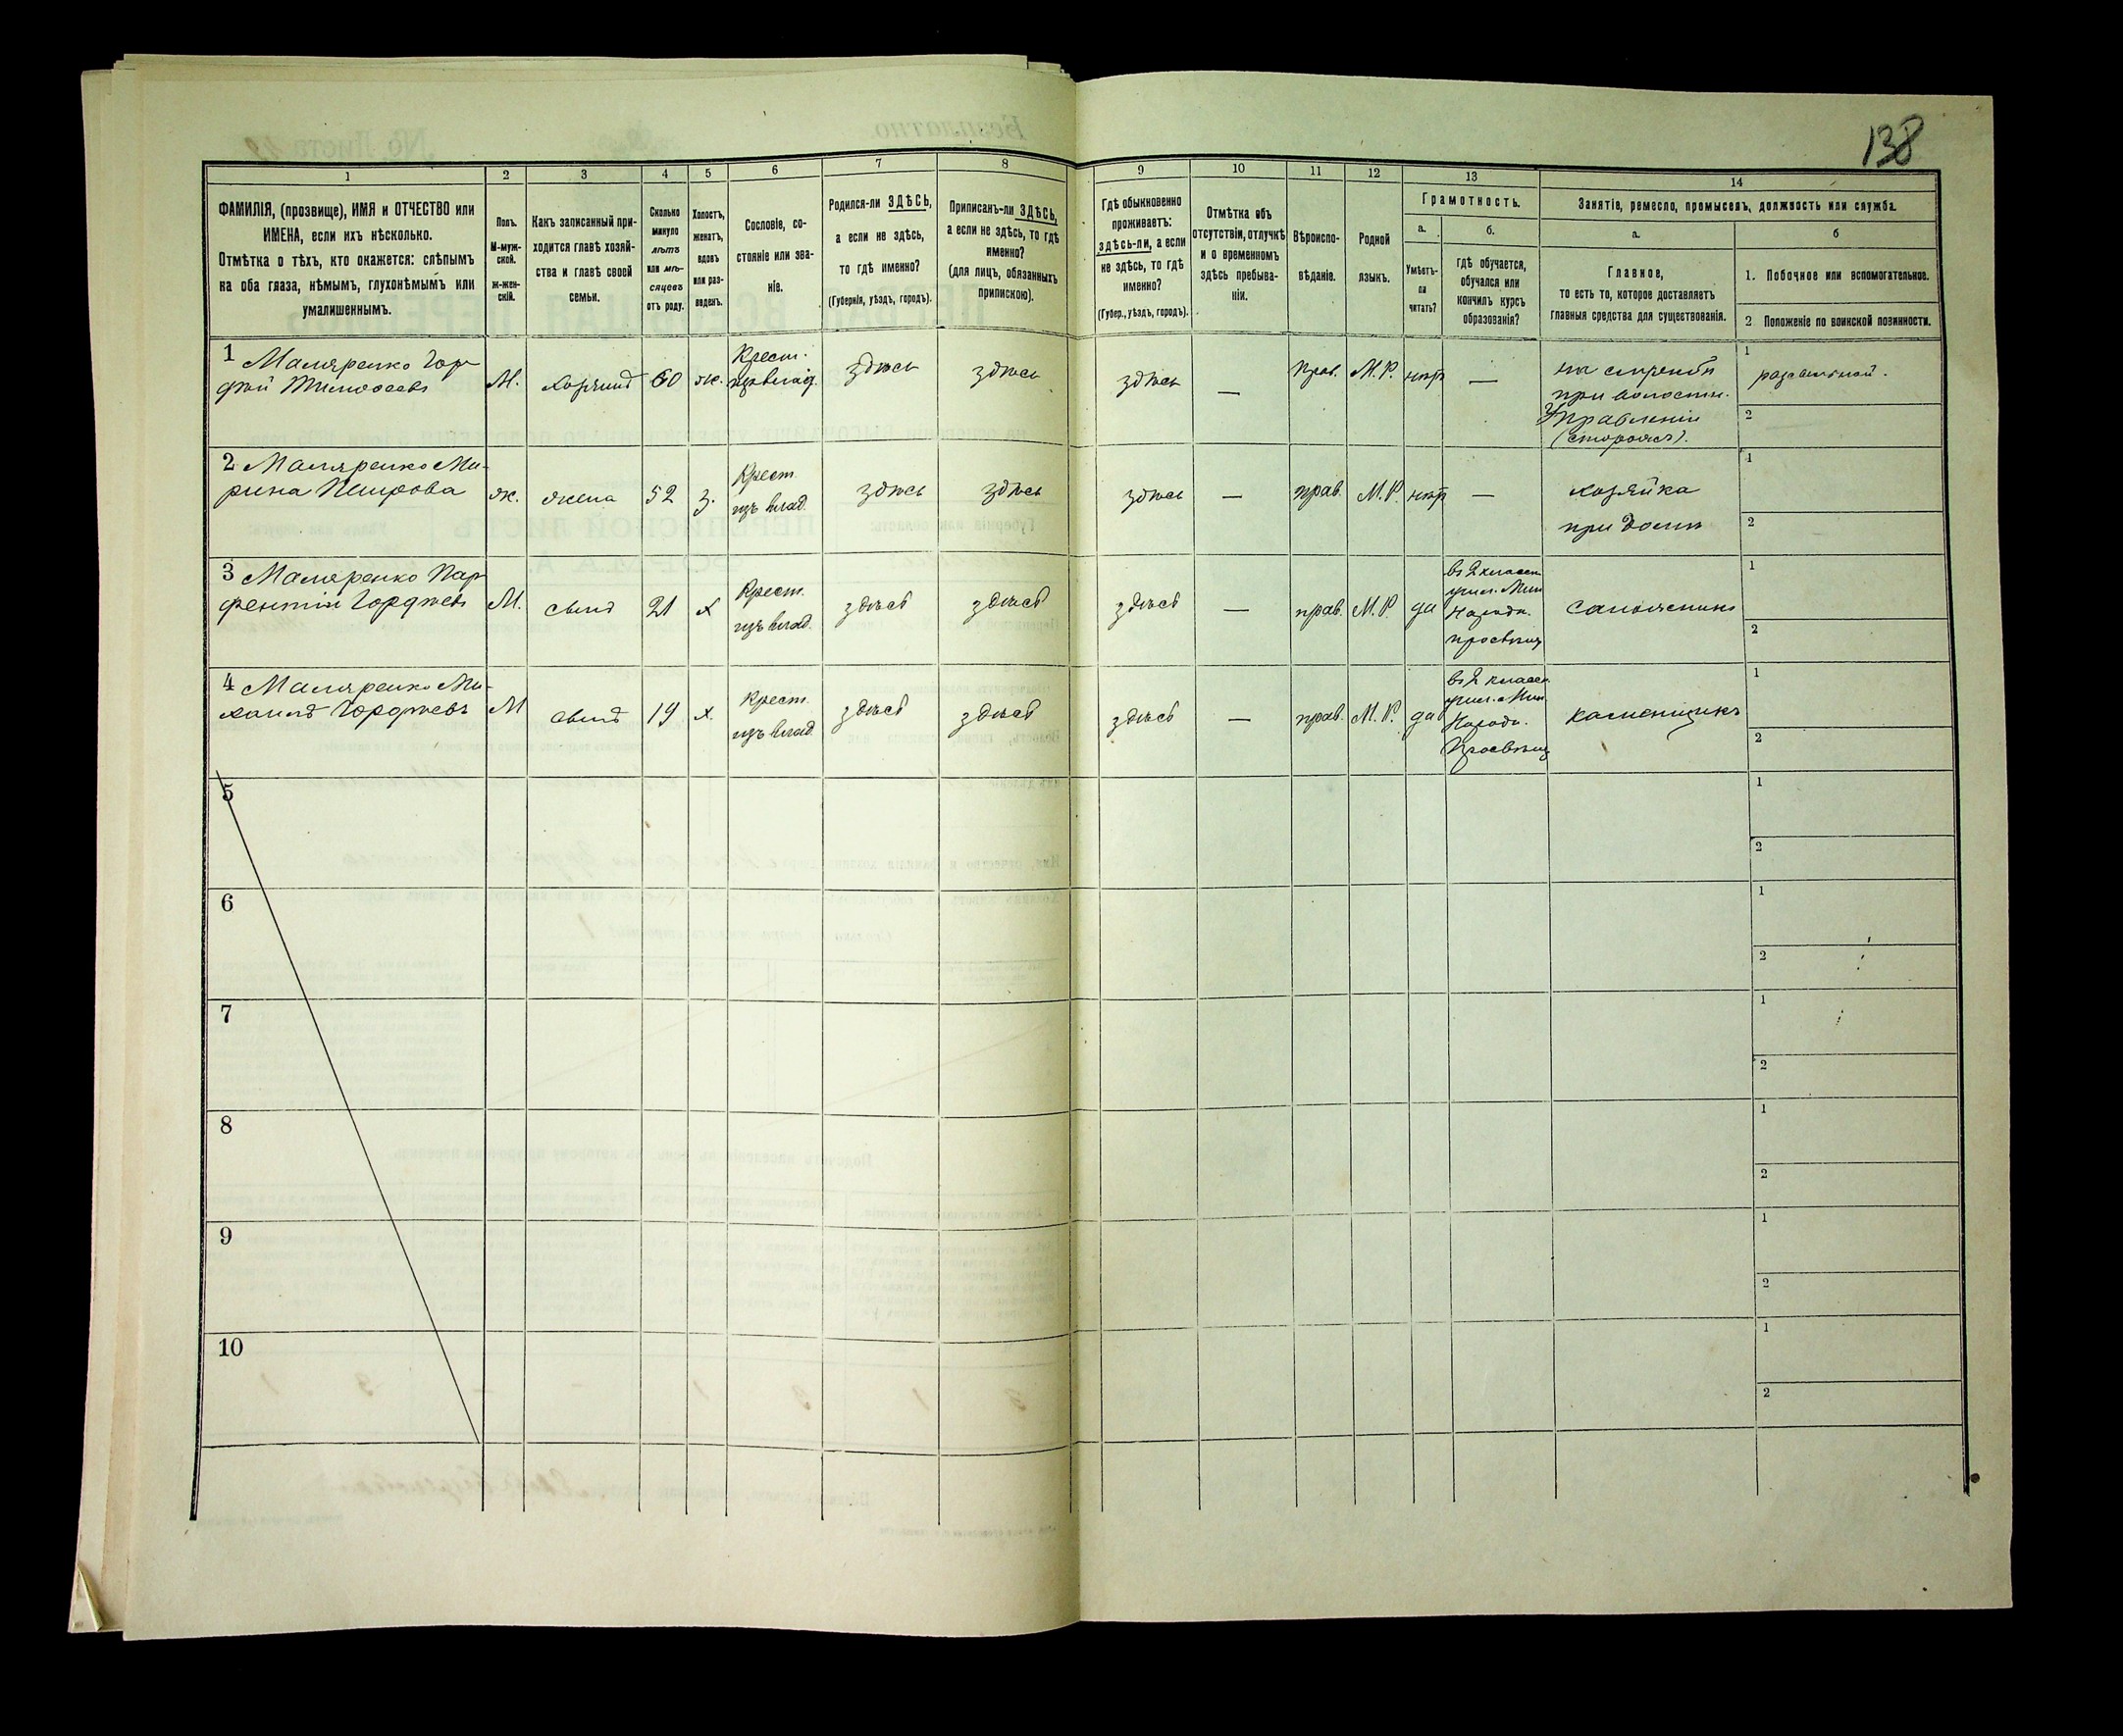 138
1 2 3 4 5 6 7 8 9 10 11 12 13 14
ФАМИЛІЯ, (прозвище), ИМЯ и ОТЧЕСТВО или
ИМЕНА, если ихъ нѣсколько.
Отмѣтка о тѣхъ, кто окажется: слѣпымъ
на оба глаза, нѣмымъ, глухонѣмымъ или
умалишеннымъ.
Полъ.
М-муж-
ской.
Ж-жен-
скій.
Какъ записанный при-
ходится главѣ хозяй-
ства и главѣ своей
семьи.
Сколько
минуло
лѣтъ
или мѣ-
сяцевъ
отъ роду.
Холостъ,
женатъ,
вдовъ
или раз-
веденъ.
Сословіе, со-
стояніе или зва-
ніе.
Родился-ли ЗДѢСЬ,
а если не здѣсь,
то гдѣ именно?
(Губернія, уѣздъ, городъ).
Приписанъ-ли ЗДѢСЬ,
а если не здѣсь, то гдѣ
именно?
(для лицъ, обязанныхъ
припискою).
Гдѣ обыкновенно
проживаетъ:
здѣсь-ли, а если
не здѣсь, то гдѣ
именно?
(Губер., уѣздъ, городъ).
Отмѣтка объ
отсутствіи, отлучкѣ
и о временномъ
здѣсь пребыва-
ніи.
Вѣроиспо-
вѣданіе.
Родной
языкъ.
Грамотность.
а.
Умѣетъ-
ли
читать?
б.
Гдѣ обучается,
обучался или
кончилъ курсъ
образованія?
Занятіе, ремесло, промыселъ, должность или служба.
а.
Главное,
то есть то, которое доставляетъ
главныя средства для существованія.
б
1. Побочное или вспомогательное.
2 Положеніе по воинской повинности.
1 Маляренко Гор-
дѣй Тимофеевъ
М.
хозяинъ
60
ж.
Крест.
изъ влад.
здѣсь
здѣсь
здѣсь
—
прав.
М. Р.
нѣтъ
—
на службѣ
при волостн.
Управленіи
(сторожъ).
1
2
2 Маляренко Ма-
рина
ж.
жена
52
з.
Крест.
изъ влад.
здѣсь
здѣсь
здѣсь
—
прав.
М. Р.
нѣтъ
—
хозяйка
при домѣ
1
2
3 Маляренко Пар-
фентій Гордѣевъ
М.
сынъ
21
х
Крест.
изъ влад.
здѣсь
здѣсь
здѣсь
—
прав.
М. Р.
да
въ 2 классн.
учил. Мин.
Народн.
просвѣщ
сапожникъ
1
2
4 Маляренко Ми-
хаилъ Гордѣевъ
М
сынъ
19
х.
Крест
изъ влад.
здѣсь
здѣсь
здѣсь
—
прав.
М. Р.
да
въ 2 классн.
учил. Мин.
Народн.
Просвѣщ
каменщикъ
1
2
5
1
2
6
1
2
7
1
2
8
1
2
9
1
2
10
1
2